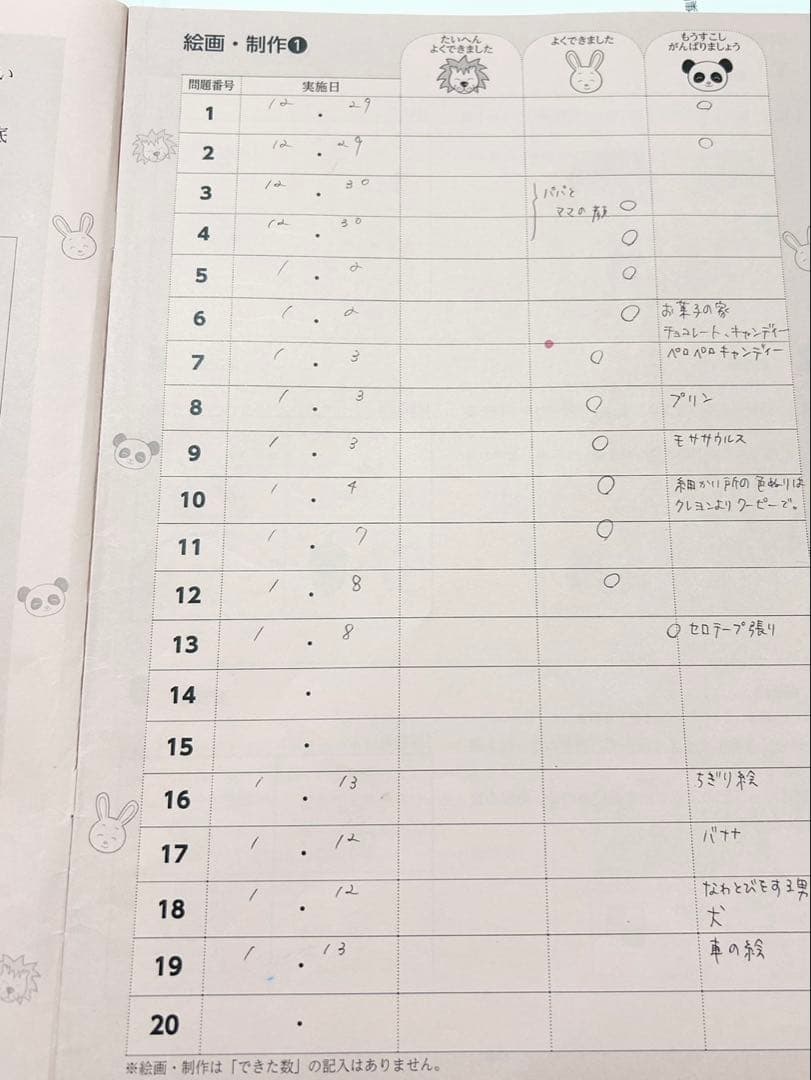 い
底
絵画・制作❶
たいへん
よくできました
よくできました
もうすこし
がんばりましょう
問題番号 実施日
1 12 ・ 29 ○
2 12 ・ 29 ○
3 12 ・ 30 パパと
ママの顔 ○
4 12 ・ 30 ○
5 1 ・ 2 ○
6 1 ・ 2 ○ お菓子の家
チョコレート、キャンディー
7 1 ・ 3 ○ ペロペロキャンディー
8 1 ・ 3 ○ プリン
9 1 ・ 3 ○ モササウルス
10 1 ・ 4 ○ 細かい所の色ぬりは
クレヨンよりクーピーで。
11 1 ・ 7 ○
12 1 ・ 8 ○
13 1 ・ 8 ○ セロテープ張り
14 ・
15 ・
16 1 ・ 13 ちぎり絵
17 1 ・ 12 バナナ
18 1 ・ 12 なわとびをする男
犬
19 1 ・ 13 車の絵
20 ・
※絵画・制作は「できた数」の記入はありません。